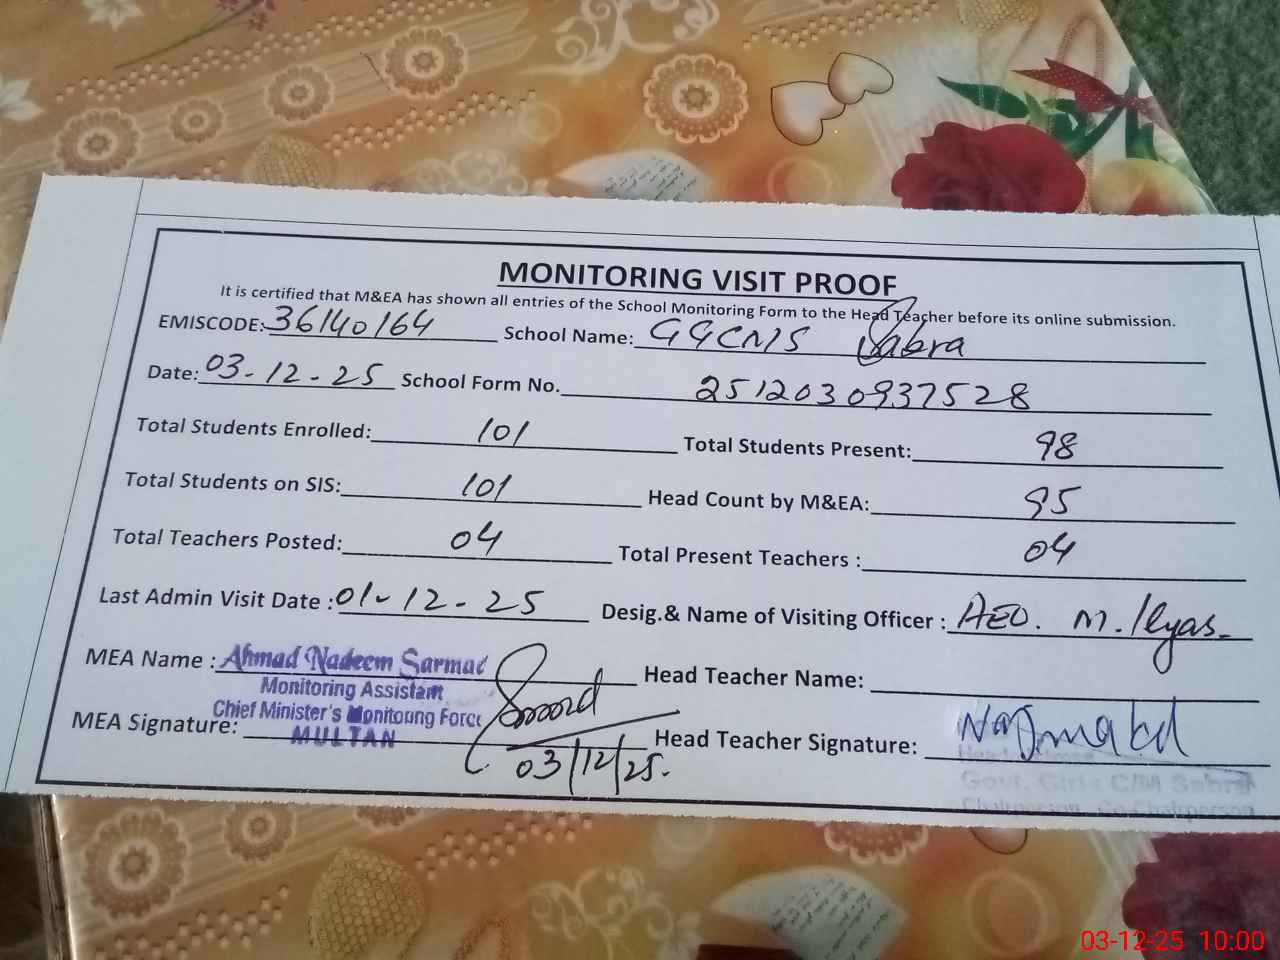 MONITORING VISIT PROOF
It is certified that M&EA has shown all entries of the School Monitoring Form to the Head Teacher before its online submission.
EMISCODE: 36140164 School Name: GGCMS Sabra
Date: 03-12-25 School Form No. 2512030937528
Total Students Enrolled: 101 Total Students Present: 98
Total Students on SIS: 101 Head Count by M&EA: 95
Total Teachers Posted: 04 Total Present Teachers : 04
Last Admin Visit Date : 01-12-25 Desig.& Name of Visiting Officer : AEO. M. Ilyas.
MEA Name : Ahmad Nadeem Sarmad Head Teacher Name:
Monitoring Assistant
Chief Minister's Monitoring Force
MULTAN
MEA Signature: 03/12/25. Head Teacher Signature:
Govt. Girls C/M Sabra
Chairperson Co-Chairperson
03-12-25 10:00